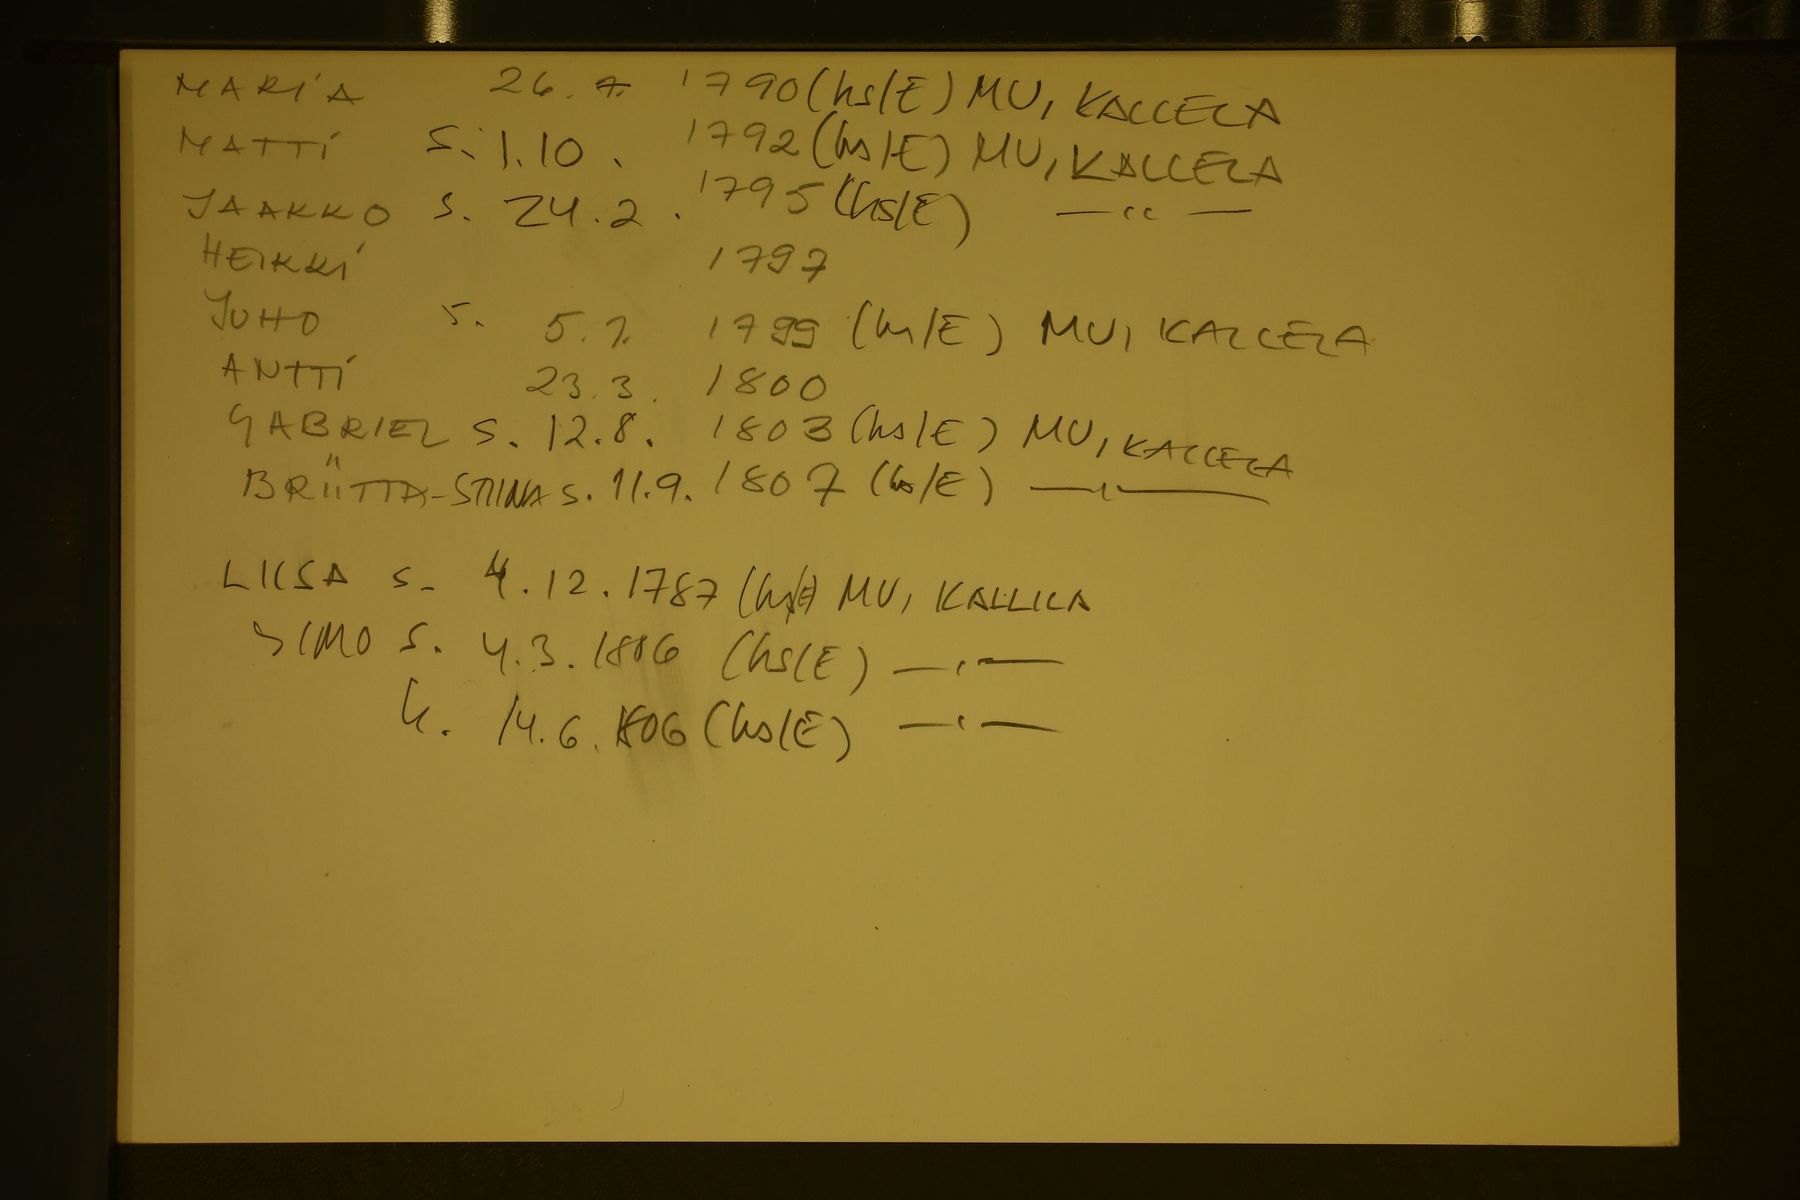 MARIA 26.7. 1790 (hs/E) MU, KALLELA
MATTI S. 1.10. 1792 (hs/E) MU, KALLELA
JAAKKO S. 24.2. 1795 (hs/E) —"—
HEIKKI 1797
JUHO S. 5.7. 1799 (hs/E) MU, KALLELA
ANTTI 23.3. 1800
GABRIEL S. 12.8. 1803 (hs/E) MU, KALLELA
BRIITTA-STIINA S. 11.9. 1807 (hs/E) —"—
LIISA S. 4.12.1787 (hs/E) MU, KALLELA
SIMO S. 4.3.1806 (hs/E) —"—
k. 14.6.1806 (hs/E) —"—